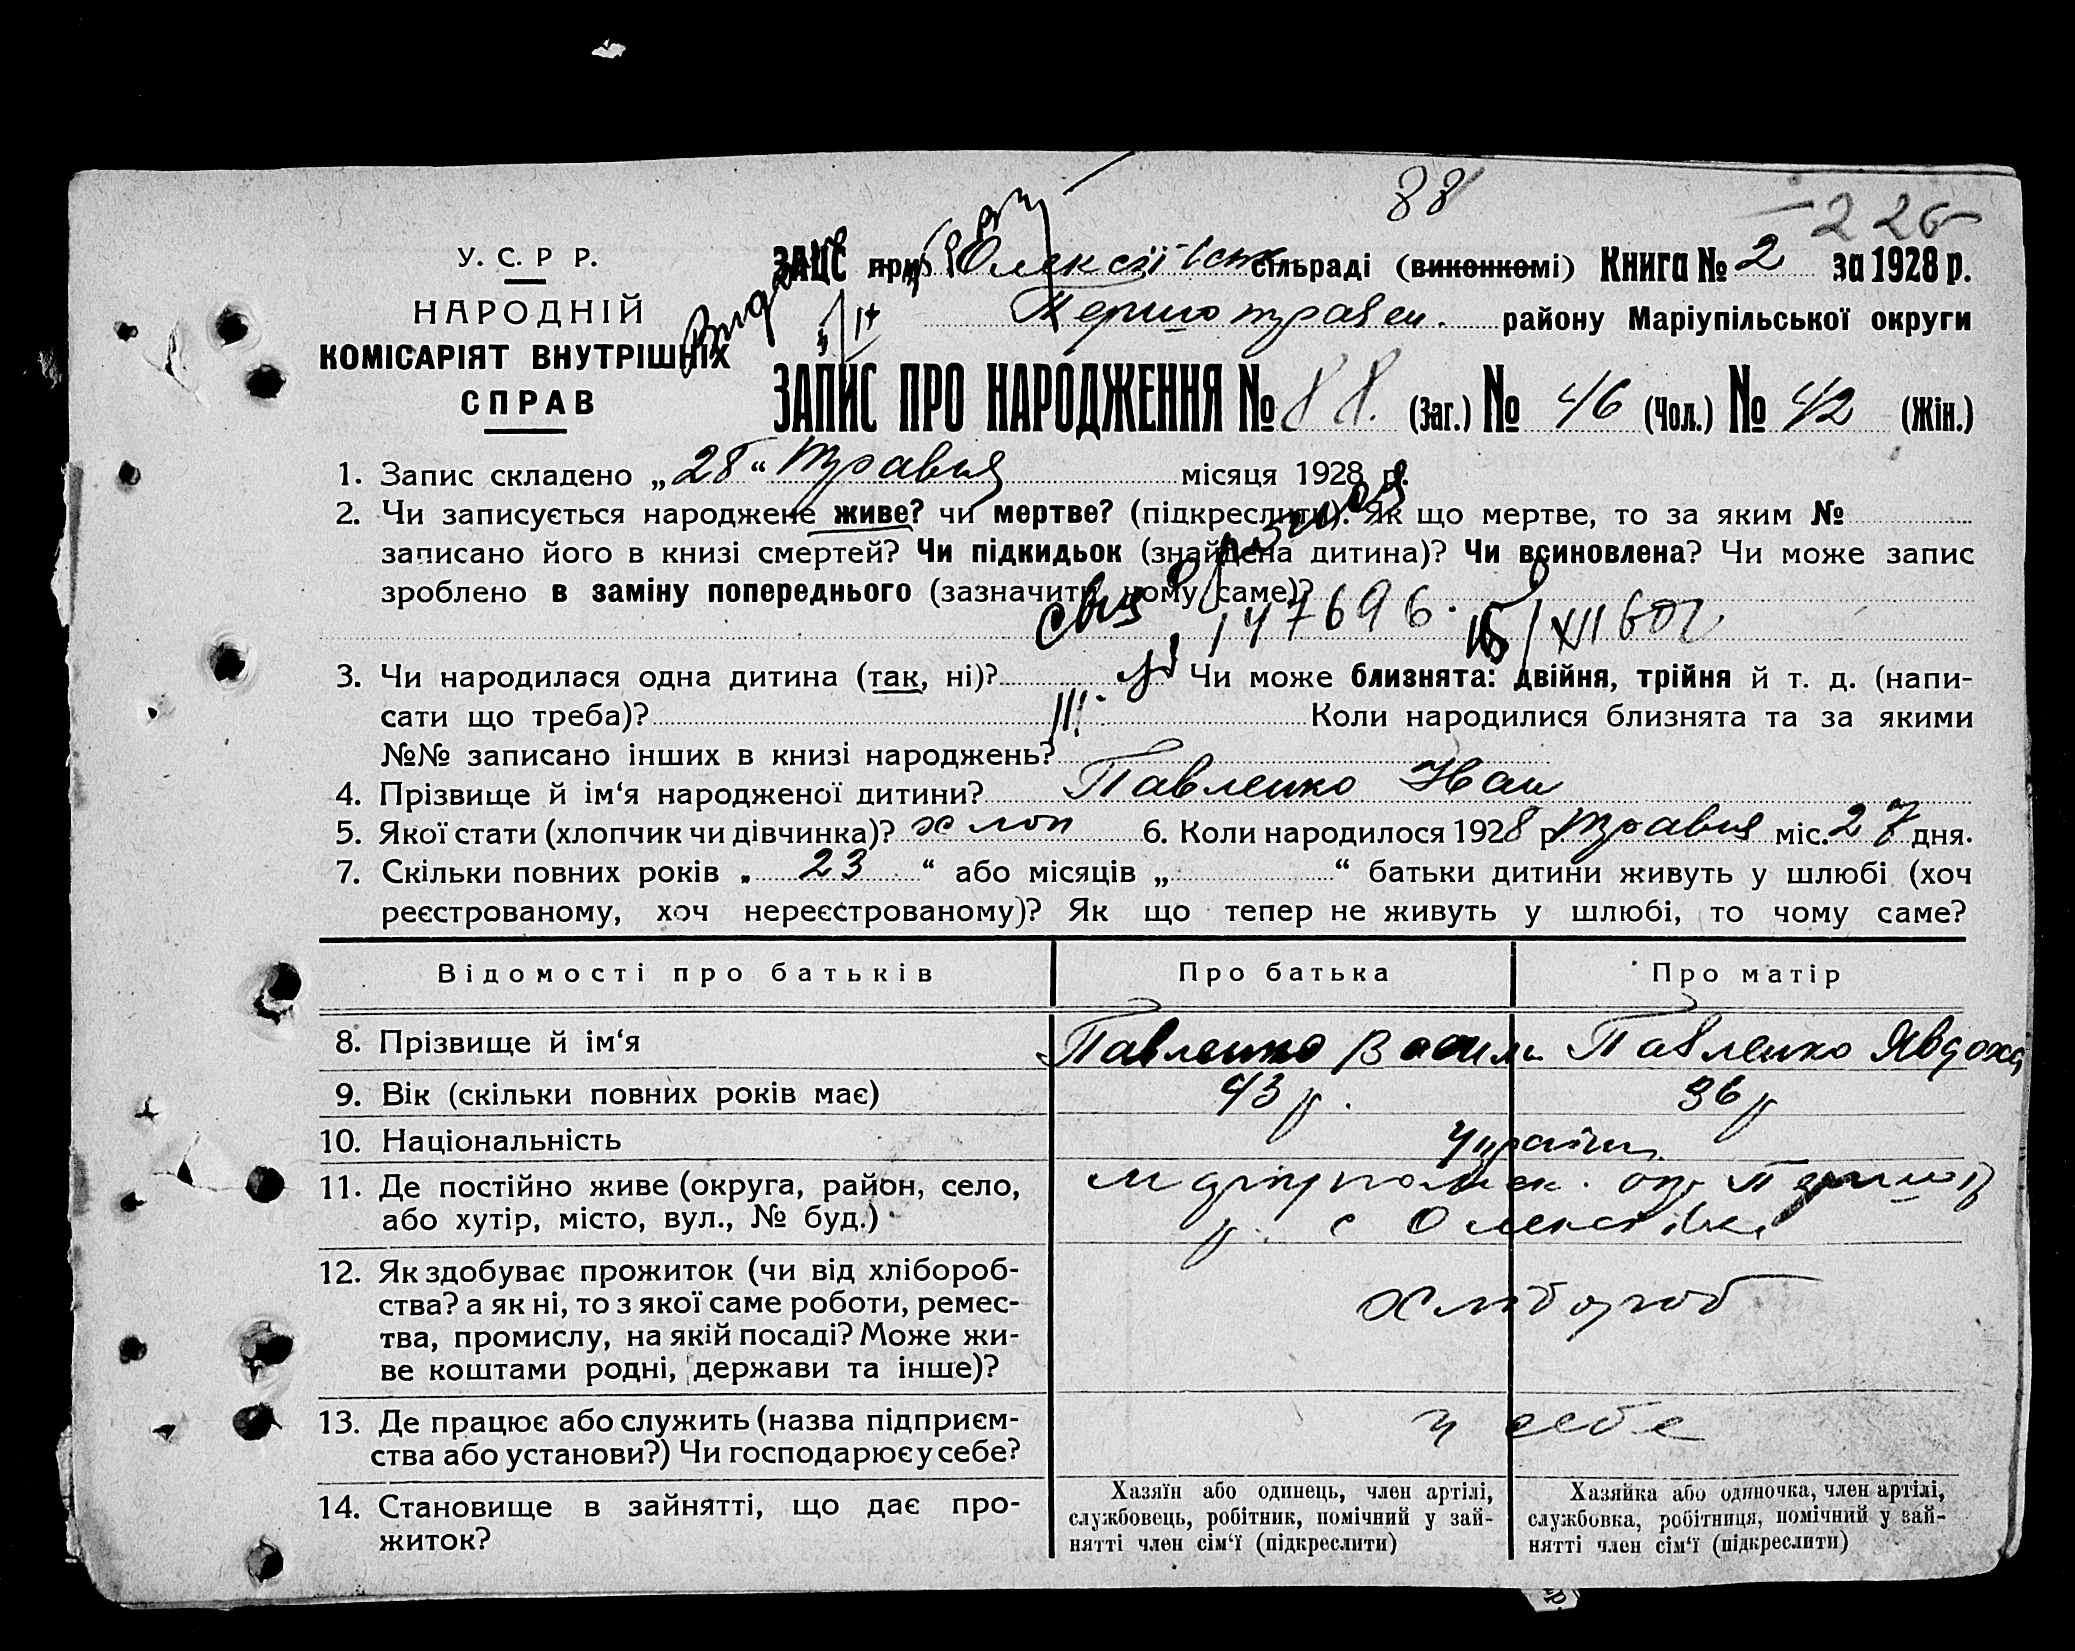 88
226
У. С. Р Р.
НАРОДНІЙ
КОМІСАРІЯТ ВНУТРІШНІХ
СПРАВ
ЗАЦС при Олексіївськ сільраді (виконкомі) Книга № 2 за 1928 р.
Першотравен. району Маріупільської округи
ЗАПИС ПРО НАРОДЖЕННЯ № 88. (Заг.) № 46 (Чол.) № 42 (Жін.)
1. Запис складено „28“ Травня місяця 1928 р.
2. Чи записується народжене живе? чи мертве? (підкреслити). Як що мертве, то за яким №
записано його в книзі смертей? Чи підкидьок (знайдена дитина)? Чи всиновлена? Чи може запис
зроблено в заміну попереднього (зазначити чому саме)?
147696. 16/XII 60г
3. Чи народилася одна дитина (так, ні)? Чи може близнята: двійня, трійня й т. д. (напи-
сати що треба)? Коли народилися близнята та за якими
№№ записано інших в книзі народжень?
4. Прізвище й ім‘я народженої дитини? Павленко Іван
5. Якої стати (хлопчик чи дівчинка)? хлоп 6. Коли народилося 1928 р. Травня міс. 27 дня.
7. Скільки повних років „ 23 “ або місяців „ “ батьки дитини живуть у шлюбі (хоч
реєстрованому, хоч нереєстрованому)? Як що тепер не живуть у шлюбі, то чому саме?
Відомості про батьків Про батька Про матір
8. Прізвище й ім‘я Павленко Василь Павленко Явдоха
9. Вік (скільки повних років має) 43 р. 36 р
10. Національність Україн.
11. Де постійно живе (округа, район, село, Маріупольськ. окр. Першотр
або хутір, місто, вул., № буд.) р. с Олексіївка
12. Як здобуває прожиток (чи від хлібороб-
ства? а як ні, то з якої саме роботи, ремес- хлібороб
тва, промислу, на якій посаді? Може жи-
ве коштами родні, держави та інше)?
13. Де працює або служить (назва підприєм- у себе
ства або установи?) Чи господарює у себе?
14. Становище в зайнятті, що дає про-
житок?
Хазяїн або одинець, член артілі,
службовець, робітник, помічний у зай-
нятті член сім‘ї (підкреслити)
Хазяйка або одиночка, член артілі,
службовка, робітниця, помічний у зай-
нятті член сім‘ї (підкреслити)